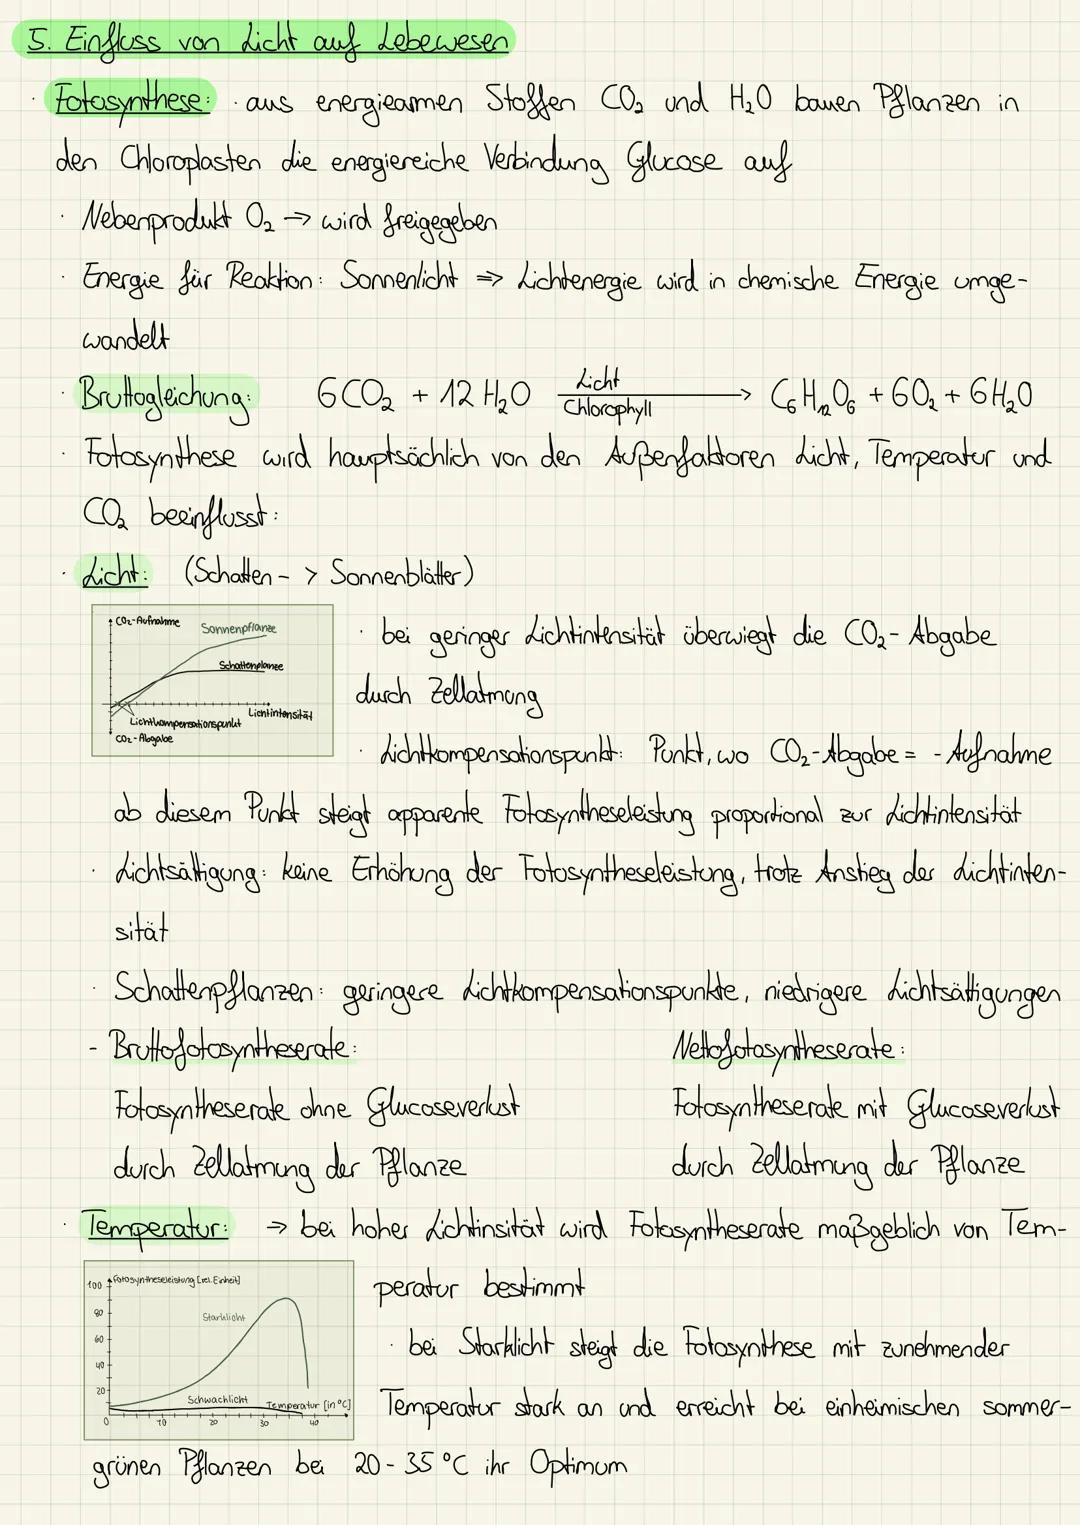 5. Einfluss von Licht auf Lebewesen
· Fotosynthese: · aus energiearmen Stoffen CO₂ und H₂O bauen Pflanzen in
den Chloroplasten die energiereiche Verbindung Glucose auf
· Nebenprodukt O₂ → wird freigegeben
· Energie für Reaktion: Sonnenlicht => Lichtenergie wird in chemische Energie umge-
wandelt
· Bruttogleichung: 6CO₂ + 12 H₂O Licht Chlorophyll → C₆H₁₂O₆ + 6O₂ + 6H₂O
· Fotosynthese wird hauptsächlich von den Außenfaktoren Licht, Temperatur und
CO₂ beeinflusst:
· Licht: (Schatten - > Sonnenblätter)
CO₂-Aufnahme
Sonnenpflanze
Schattenplanze
Lichtintensität
Lichtkompensationspunkt
CO₂-Abgabe
· bei geringer Lichtintensität überwiegt die CO₂-Abgabe
durch Zellatmung
· Lichtkompensationspunkt: Punkt, wo CO₂-Abgabe = -Aufnahme
ab diesem Punkt steigt apparente Fotosyntheseleistung proportional zur Lichtintensität
· Lichtsättigung: keine Erhöhung der Fotosyntheseleistung, trotz Anstieg der Lichtinten-
sität
· Schattenpflanzen: geringere Lichtkompensationspunkte, niedrigere Lichtsättigungen
- Bruttofotosyntheserate: Nettofotosyntheserate:
Fotosyntheserate ohne Glucoseverlust Fotosyntheserate mit Glucoseverlust
durch Zellatmung der Pflanze durch Zellatmung der Pflanze
· Temperatur: → bei hoher Lichtinsität wird Fotosyntheserate maßgeblich von Tem-
peratur bestimmt
Fotosyntheseleistung [rel. Einheit]
100
80
60
40
20
Starklicht
Schwachlicht
Temperatur [in °C]
0 10 20 30 40
· bei Starklicht steigt die Fotosynthese mit zunehmender
Temperatur stark an und erreicht bei einheimischen sommer-
grünen Pflanzen bei 20 - 35 °C ihr Optimum